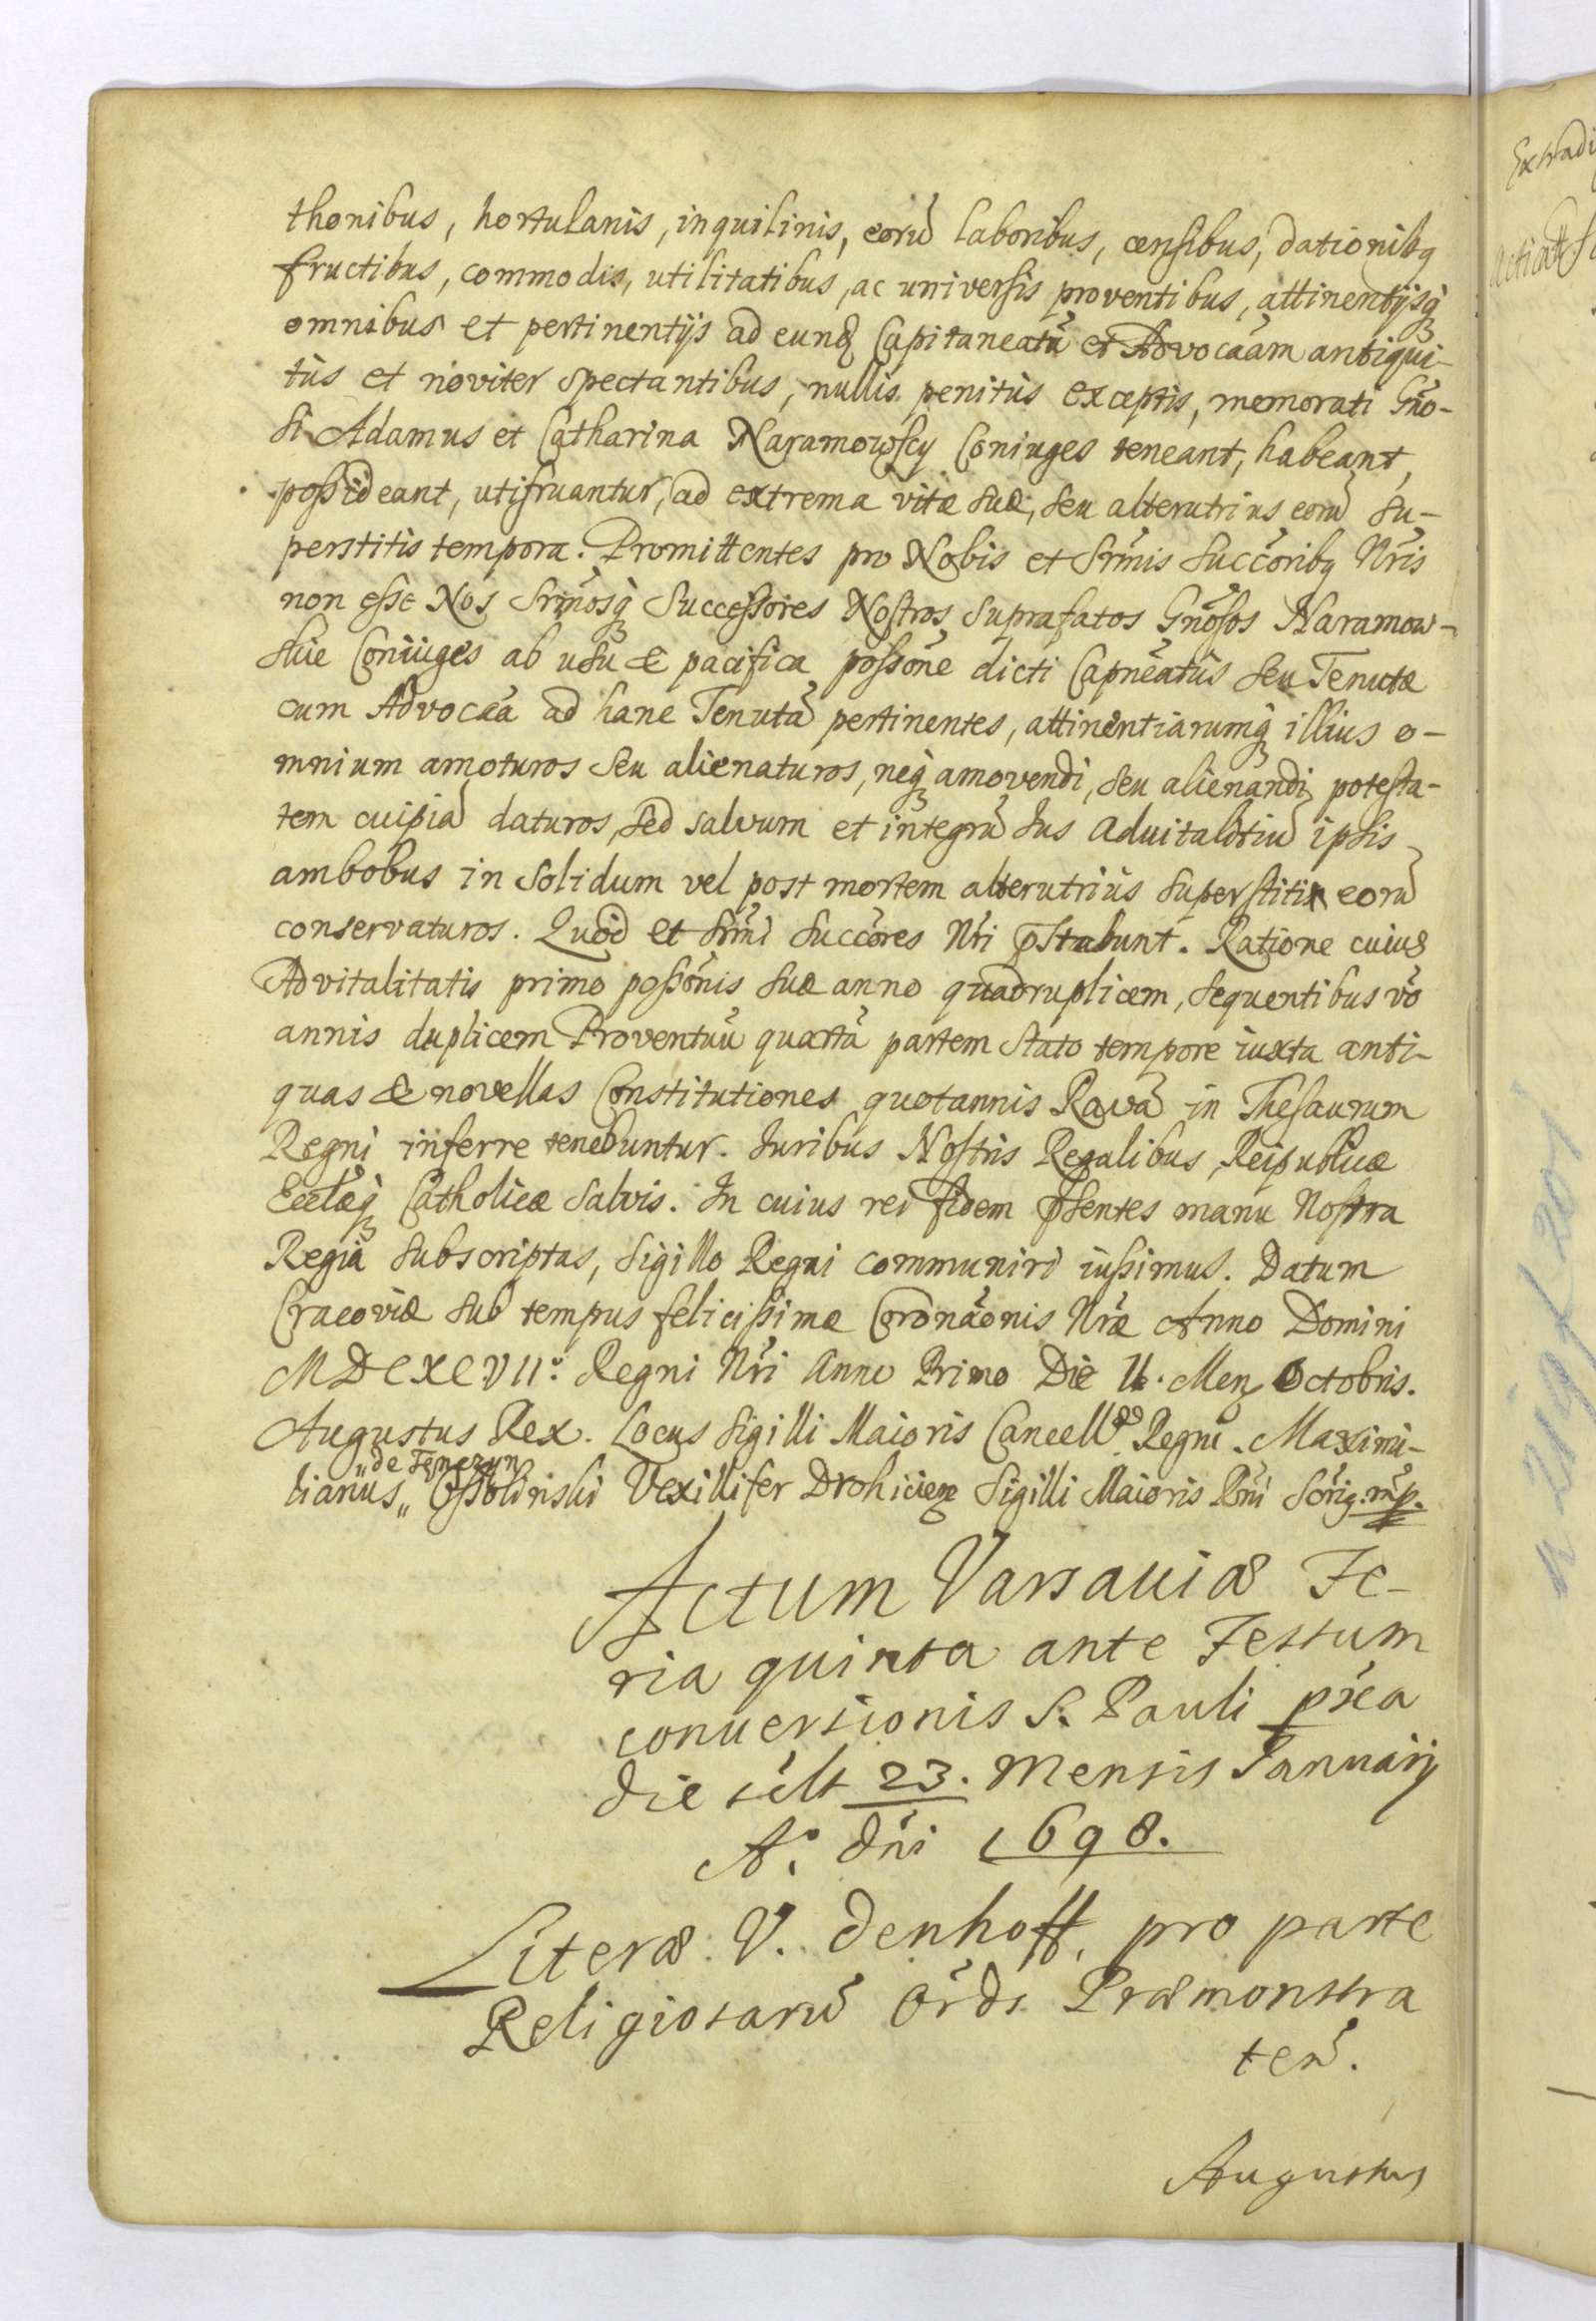 thonibus, hortulanis, inquilinis, eorũ laboribus, censibus, dationibq
fructibus, commodis, utilitatibus, ac universis proventibus, attinentijsq
omnibus et pertinentijs ad eund Capitaneatũ et Advocaãm antiqui-
tùs et noviter spectantibus, nullis penitùs exceptis, memorati Gño-
si Adamus et Catharina Naramowscy Coniuges teneant, habeant,
possideant, utifruantur, ad extrema vitæ suæ, seu alterutrius eorũ su-
perstitis tempora. Promittentes pro Nobis et Srm̃is Succõribq Nr̃is
non esse Nos Srm̃osq Successores Nostros suprafatos Gnõsos Naramow-
skie Coniuges ab usu & pacifica possõne dicti Capnẽatũs seu Tenutæ
cum Advocãa ad hanc Tenutã pertinentes, attinentiarumq illius o-
mnium amoturos seu alienaturos, neq amovendi, seu alienandi potesta-
tem cuipiã daturos, sed salvum et integrũ Ius Aduitalitiũ ipsis
ambobus in solidum vel post mortem alterutriũs superstitis eorũ
conservaturos. Quod et Srm̃i Succõres Nr̃i pstabunt. Ratione cuius
Advitalitatis primo possõnis suæ anno quadruplicem, sequentibus võ
annis duplicem Proventuũ quartã partem stato tempore iuxta anti-
quas & novellas Constitutiones quotannis Ravã in Thesaurum
Regni inferre tenebuntur. Iuribus Nostris Regalibus, Reipublicæ
Ecclæq Catholicæ salvis. In cuius rei fidem psentes manu Nostra
Regia subscriptas, Sigillo Regni communiri iussimus. Datum
Cracoviæ sub tempus felicissimæ Coronãonis Nr̃æ Anno Domini
MDCXCVII. Regni Nr̃i Anno Primo Die Men Octobris.
Augustus Rex. Locus Sigilli Maioris Cancell Regni. Maximi-
"de Tenczyn
lianus" Ossolinski Vexillifer Drohicien Sigilli Maioris Rñi Sõrig. mp.
Actum Varsaviæ Fe-
ria quinta ante Festum
conversionis S. Pauli pr̃ia
die sclt 23. Mensis Januarij
A. dñi 1698.
Literæ V. Denhoff, pro parte
Religiosarũ Ordi Præmonstra
teñ.
Augustus
Extradi